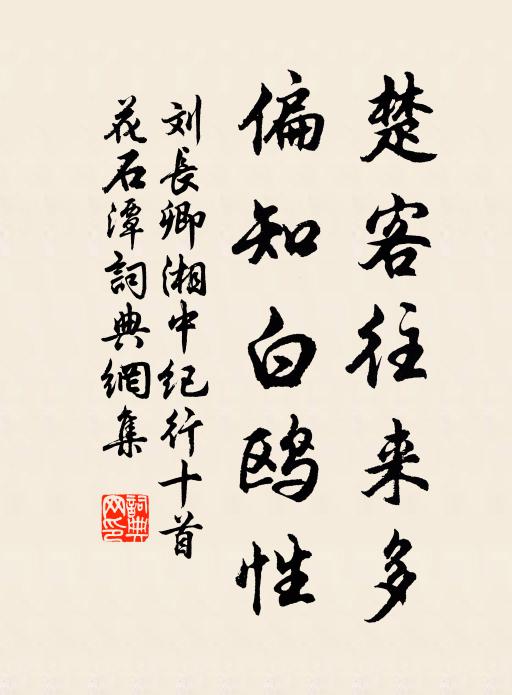 楚客往来多
偏知白鸥性
刘長卿湘中纪行十首
花石潭詞典網集
詞典
网印